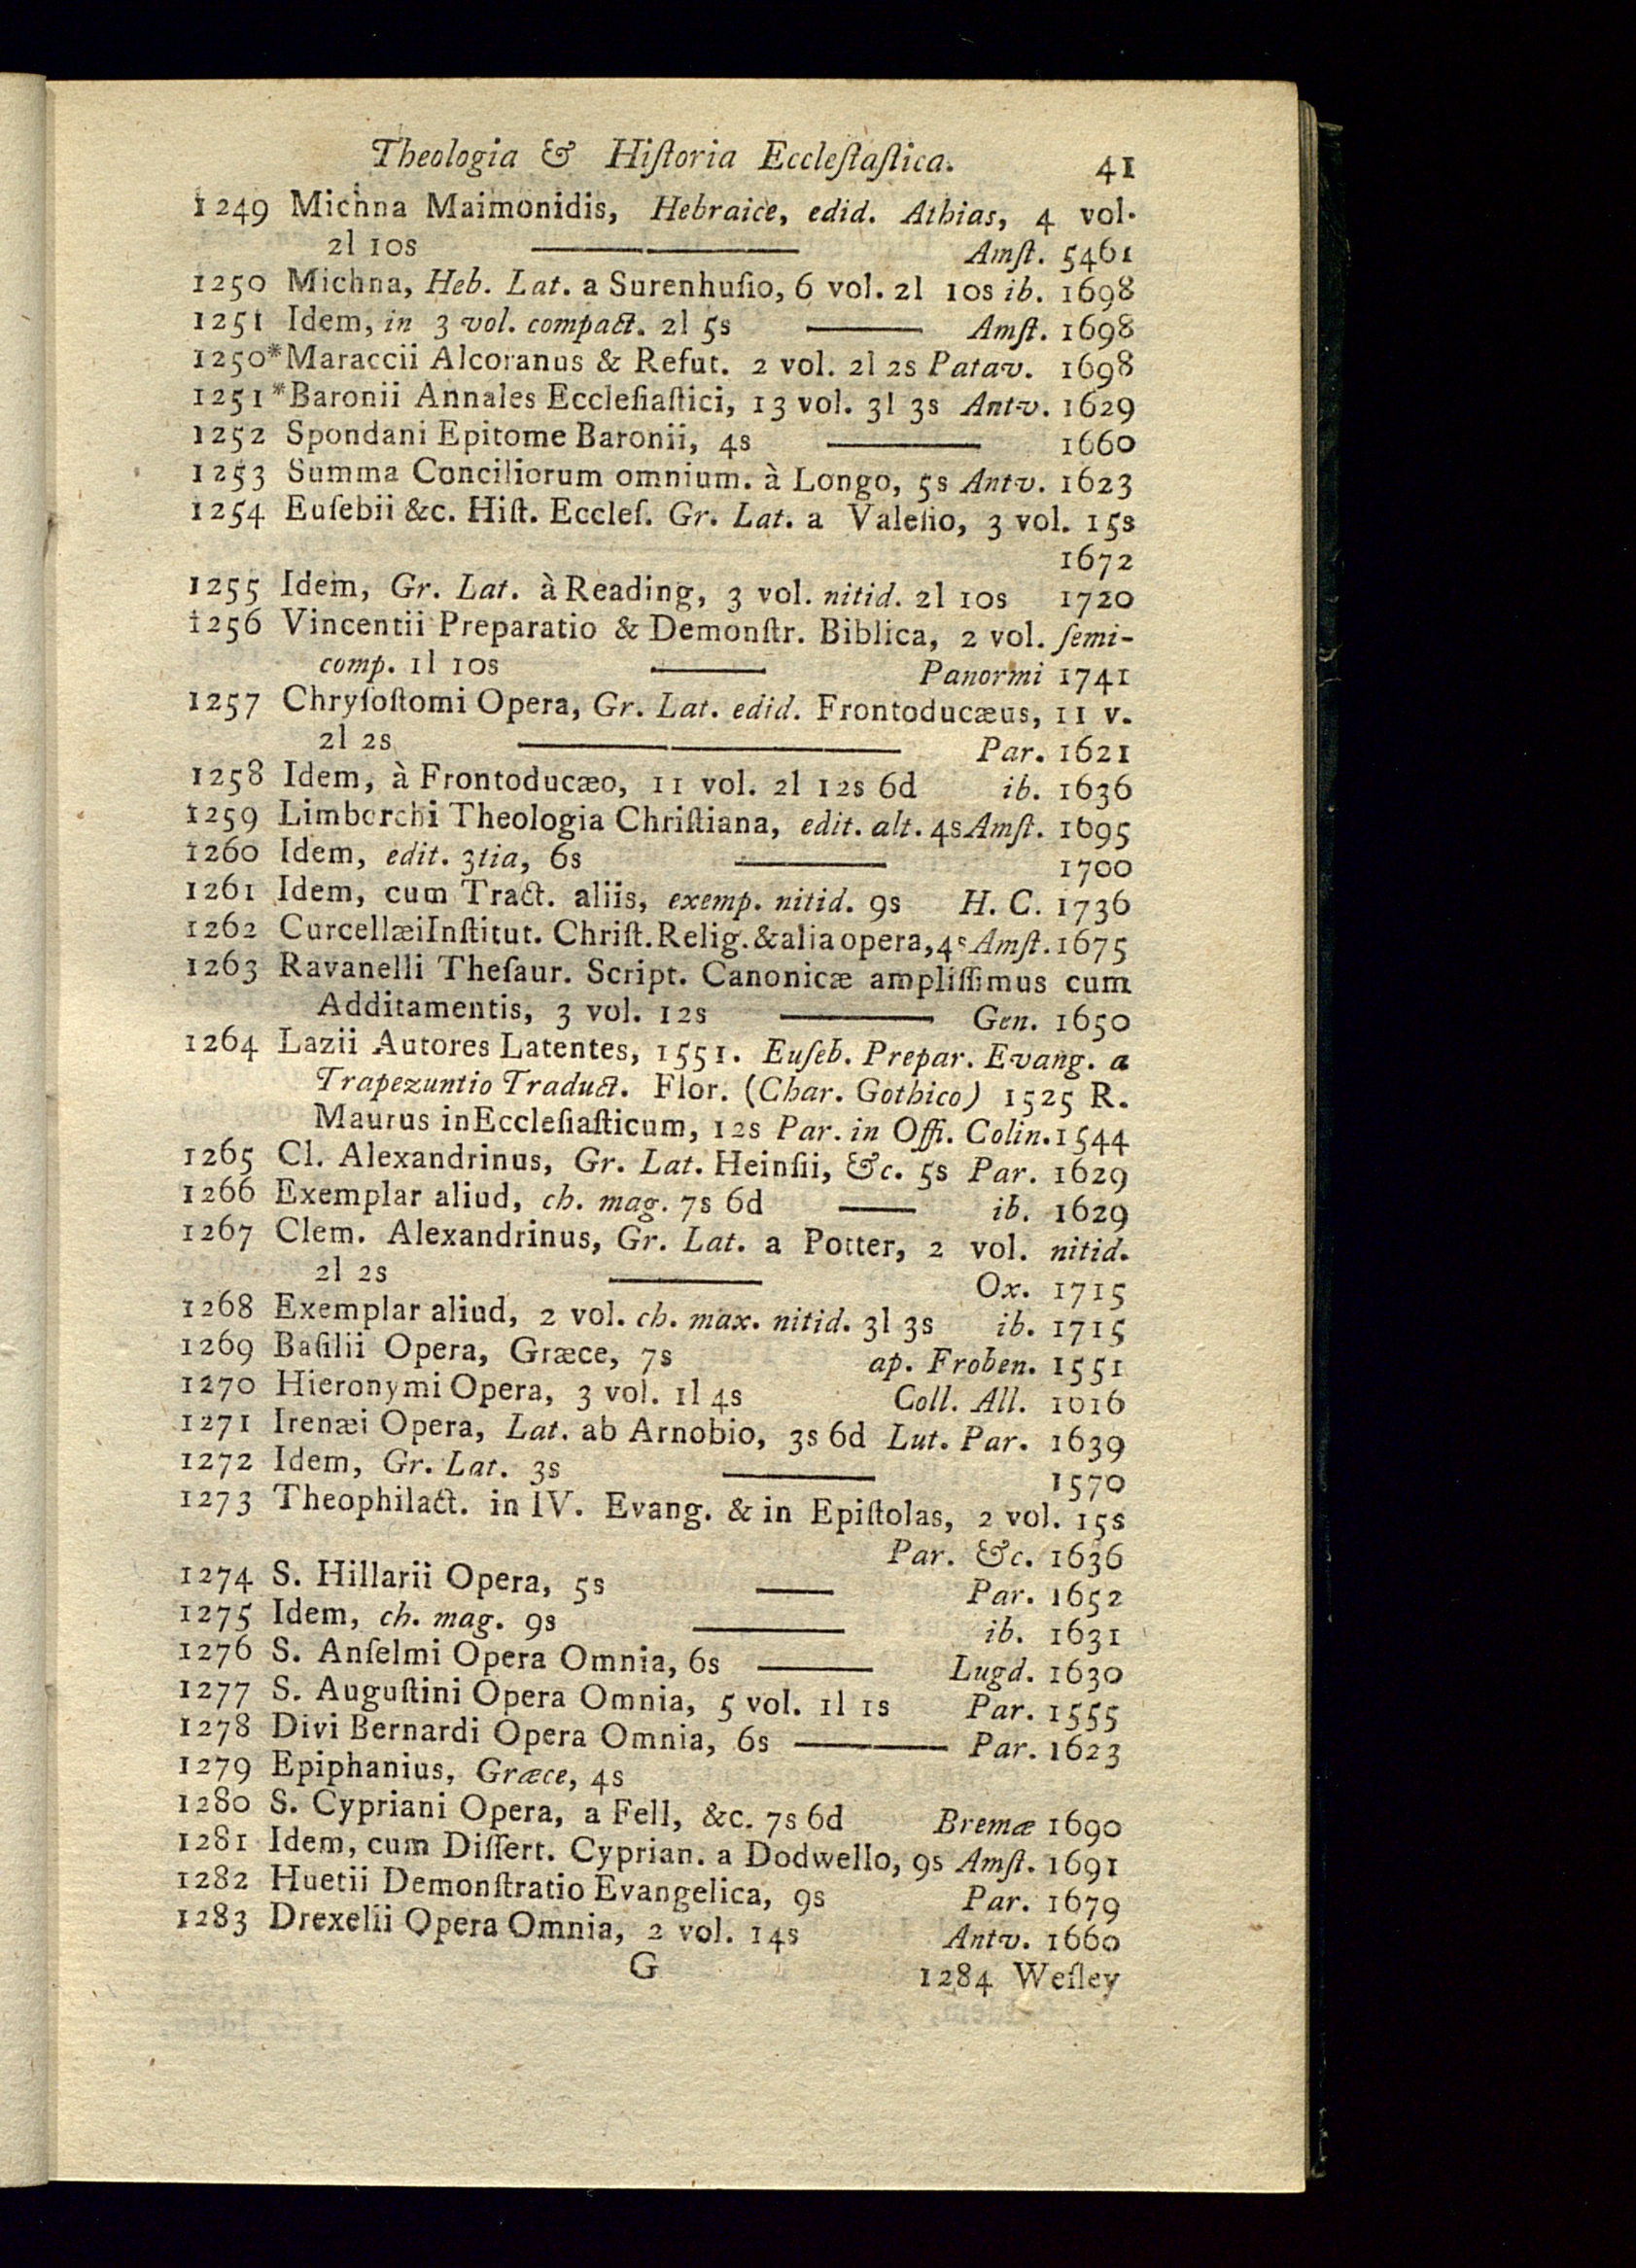 Theologia & Hiſtoria Eccleſtaſtica. 41
1249 Michna Maimonidis, Hebraice, edid. Athias, 4 vol.
2l 10s ——— Amſt. 5461
1250 Michna, Heb. Lat. a Surenhuſio, 6 vol. 2l 10s ib. 1698
1251 Idem, in 3 vol. compact. 2l 5s ——— Amſt. 1698
1250*Maraccii Alcoranus & Refut. 2 vol. 2l 2s Patav. 1698
1251*Baronii Annales Eccleſiaſtici, 13 vol. 3l 3s Antv. 1629
1252 Spondani Epitome Baronii, 4s ——— 1660
1253 Summa Conciliorum omnium. à Longo, 5s Antv. 1623
1254 Euſebii &c. Hiſt. Eccleſ. Gr. Lat. a Valeſio, 3 vol. 15s
1672
1255 Idem, Gr. Lat. à Reading, 3 vol. nitid. 2l 10s 1720
1256 Vincentii Preparatio & Demonſtr. Biblica, 2 vol. ſemi-
comp. 1l 10s ——— Panormi 1741
1257 Chryſoſtomi Opera, Gr. Lat. edid. Frontoducæus, 11 v.
2l 2s ——— Par. 1621
1258 Idem, à Frontoducæo, 11 vol. 2l 12s 6d ib. 1636
1259 Limborchi Theologia Chriſtiana, edit. alt. 4s Amſt. 1695
1260 Idem, edit. 3tia, 6s ——— 1700
1261 Idem, cum Tract. aliis, exemp. nitid. 9s H. C. 1736
1262 Curcellæi Inſtitut. Chriſt. Relig. & alia opera, 4s Amſt. 1675
1263 Ravanelli Theſaur. Script. Canonicæ ampliſſimus cum
Additamentis, 3 vol. 12s ——— Gen. 1650
1264 Lazii Autores Latentes, 1551. Euſeb. Prepar. Evang. a
Trapezuntio Traduct. Flor. (Char. Gothico) 1525 R.
Maurus in Eccleſiaſticum, 12s Par. in Offi. Colin. 1544
1265 Cl. Alexandrinus, Gr. Lat. Heinſii, &c. 5s Par. 1629
1266 Exemplar aliud, ch. mag. 7s 6d ——— ib. 1629
1267 Clem. Alexandrinus, Gr. Lat. a Potter, 2 vol. nitid.
2l 2s ——— Ox. 1715
1268 Exemplar aliud, 2 vol. ch. max. nitid. 3l 3s ib. 1715
1269 Baſilii Opera, Græce, 7s ap. Froben. 1551
1270 Hieronymi Opera, 3 vol. 1l 4s Coll. All. 1616
1271 Irenæi Opera, Lat. ab Arnobio, 3s 6d Lut. Par. 1639
1272 Idem, Gr. Lat. 3s ——— 1570
1273 Theophilact. in IV. Evang. & in Epiſtolas, 2 vol. 15s
Par. &c. 1636
1274 S. Hillarii Opera, 5s ——— Par. 1652
1275 Idem, ch. mag. 9s ——— ib. 1631
1276 S. Anſelmi Opera Omnia, 6s ——— Lugd. 1630
1277 S. Auguſtini Opera Omnia, 5 vol. 1l 1s Par. 1555
1278 Divi Bernardi Opera Omnia, 6s ——— Par. 1623
1279 Epiphanius, Græce, 4s
1280 S. Cypriani Opera, a Fell, &c. 7s 6d Bremæ 1690
1281 Idem, cum Diſſert. Cyprian. a Dodwello, 9s Amſt. 1691
1282 Huetii Demonſtratio Evangelica, 9s Par. 1679
1283 Drexelii Opera Omnia, 2 vol. 14s Antv. 1660
G 1284 Weſley